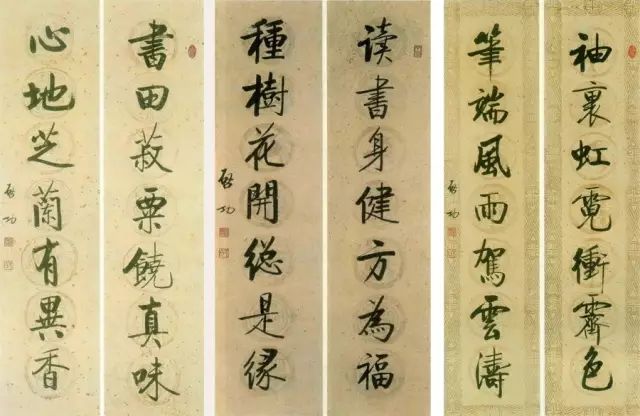 袖裹虹霓衝霽色
筆端風雨駕雲濤
啓功
读書身健方為福
種樹花開總是緣
啓功
書田菽粟饒真味
心地芝蘭有異香
啓功